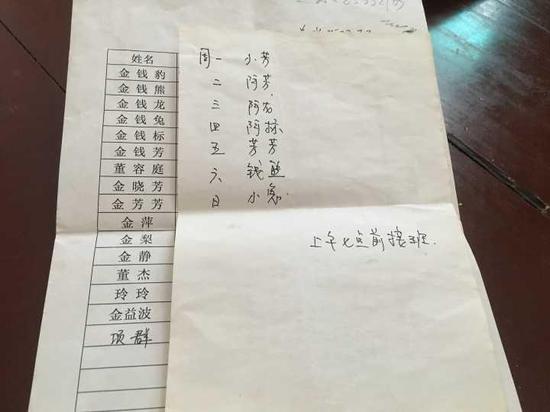 姓名
金钱豹
金钱熊
金钱龙
金钱兔
金钱标
金钱芳
董容庭
金晓芳
金芳芳
金萍
金梨
金静
董杰
玲玲
金益波
项群
周一 小芳
二 阿芳
三 阿龙
四 阿标
五 芳芳
六 钱熊
日 小兔
上午七点前接班.